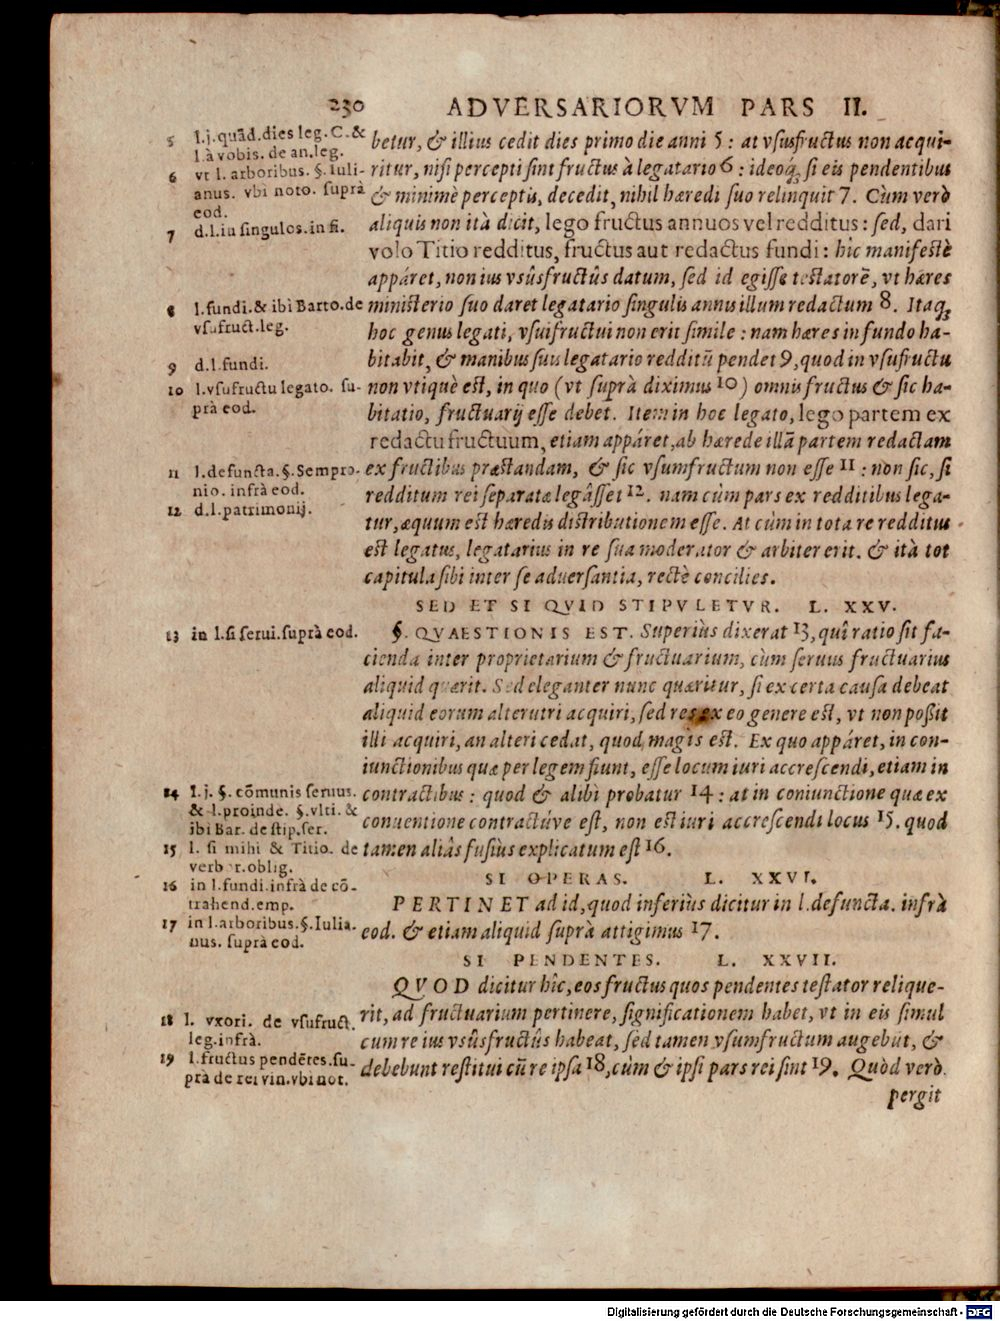 230 ADVERSARIORVM PARS II.
5 l.j.quãd.dies leg.C.&
l.à vobis. de an.leg.
6 vt l. arboribus. §. Iuli-
anus. vbi noto. suprà
eod.
7 d.l.iu singulos.in fi.
8 l.fundi.& ibi Barto.de
vsufruct.leg.
9 d.l.fundi.
10 l.vsufructu legato. su-
prà eod.
11 l.defuncta.§.Sempro-
nio. infrà eod.
12 d.l.patrimonij.
13 in l.si serui.suprà eod.
14 l.j.§.cõmunis seruus.
& l.proinde. §.vlti. &
ibi Bar. de stip.ser.
15 l. si mihi & Titio. de
verb r.oblig.
16 in l.fundi.infrà de cõ-
trahend.emp.
17 in l.arboribus.§.Iulia-
nus. suprà eod.
18 l. vxori. de vsufruct.
leg.infrà.
19 l.fructus pendẽtes.su-
prà de rei vin.vbi not.
betur, & illius cedit dies primo die anni 5 : at vsusfructus non acqui-
ritur, nisi percepti sint fructus à legatario 6 : ideoq́; si eis pendentibus
& minimè perceptis, decedit, nihil hæredi suo relinquit 7. Cùm verò
aliquis non ità dicit, lego fructus annuos vel redditus : sed, dari
volo Titio redditus, fructus aut redactus fundi : hîc manifestè
appáret, non ius vsûsfructûs datum, sed id egisse testatorẽ, vt hæres
ministerio suo daret legatario singulis annis illum redactum 8. Itaq;
hoc genus legati, vsuifructui non erit simile : nam hæres in fundo ha-
bitabit, & manibus suis legatario redditũ pendet 9, quod in vsufructu
non vtiquè est, in quo (vt suprà diximus 10) omnis fructus & sic ha-
bitatio, fructuarij esse debet. Item in hoc legato, lego partem ex
redactu fructuum, etiam appáret, ab hærede illã partem redactam
ex fructibus præstandam, & sic vsumfructum non esse 11 : non sic, si
redditum rei separatæ legâsset 12. nam cùm pars ex redditibus lega-
tur, æquum est hæredis distributionem esse. At cùm in tota re redditus
est legatus, legatarius in re sua moderator & arbiter erit. & ità tot
capitula sibi inter se aduersantia, rectè concilies.
SED ET SI QVID STIPVLETVR. L. XXV.
§. QVAESTIONIS EST. Superiùs dixerat 13, quî ratio sit fa-
cienda inter proprietarium & fructuarium, cùm seruus fructuarius
aliquid quærit. Sed eleganter nunc quæritur, si ex certa causa debeat
aliquid eorum alterutri acquiri, sed res ex eo genere est, vt non poßit
illi acquiri, an alteri cedat, quod magis est. Ex quo appáret, in con-
iunctionibus quæ per legem fiunt, esse locum iuri accrescendi, etiam in
contractibus : quod & alibi probatur 14 : at in coniunctione quæ ex
conuentione contractúve est, non est iuri accrescendi locus 15. quod
tamen aliâs fusiùs explicatum est 16.
SI OPERAS. L. XXVI.
PERTINET ad id, quod inferiùs dicitur in l.defuncta. infrà
eod. & etiam aliquid suprà attigimus 17.
SI PENDENTES. L. XXVII.
QVOD dicitur hîc, eos fructus quos pendentes testator relique-
rit, ad fructuarium pertinere, significationem habet, vt in eis simul
cum re ius vsûsfructûs habeat, sed tamen vsumfructum augebũt, &
debebunt restitui cũ re ipsa 18, cùm & ipsi pars rei sint 19. Quòd verò
pergit
Digitalisierung gefördert durch die Deutsche Forschungsgemeinschaft - DFG